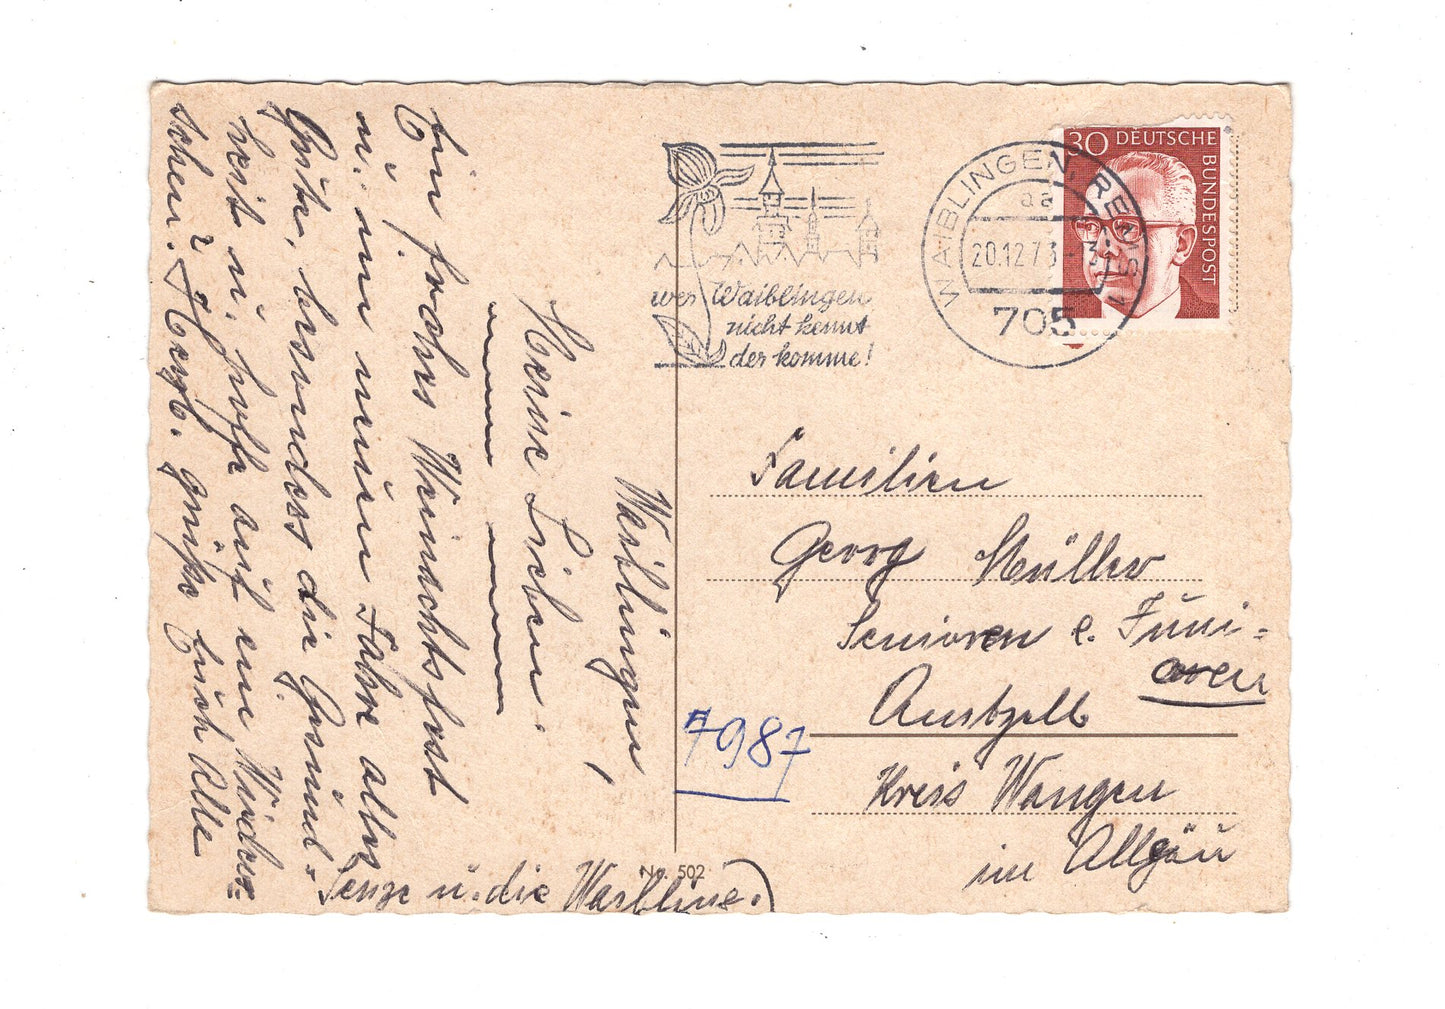 Waiblingen,
Meine Lieben!
Ein frohes Weinachtsfest
u. im neuen Jahre alles
Gute, besondess die Gesund=
heit u. hoffe auf ein Wieder=
sehen! Herzl. grüßt Euch Alle
u. die Waiblinge.
wer Waiblingen
nicht kennt
der komme!
WAIBLINGEN, REMS 1
aa
20.12.73
705
30 DEUTSCHE
BUNDESPOST
Familien
Georg Müller
Senioren e. Juni=
oren
Amtzell
7987
Kreis Wangen
im Allgäu
No. 502